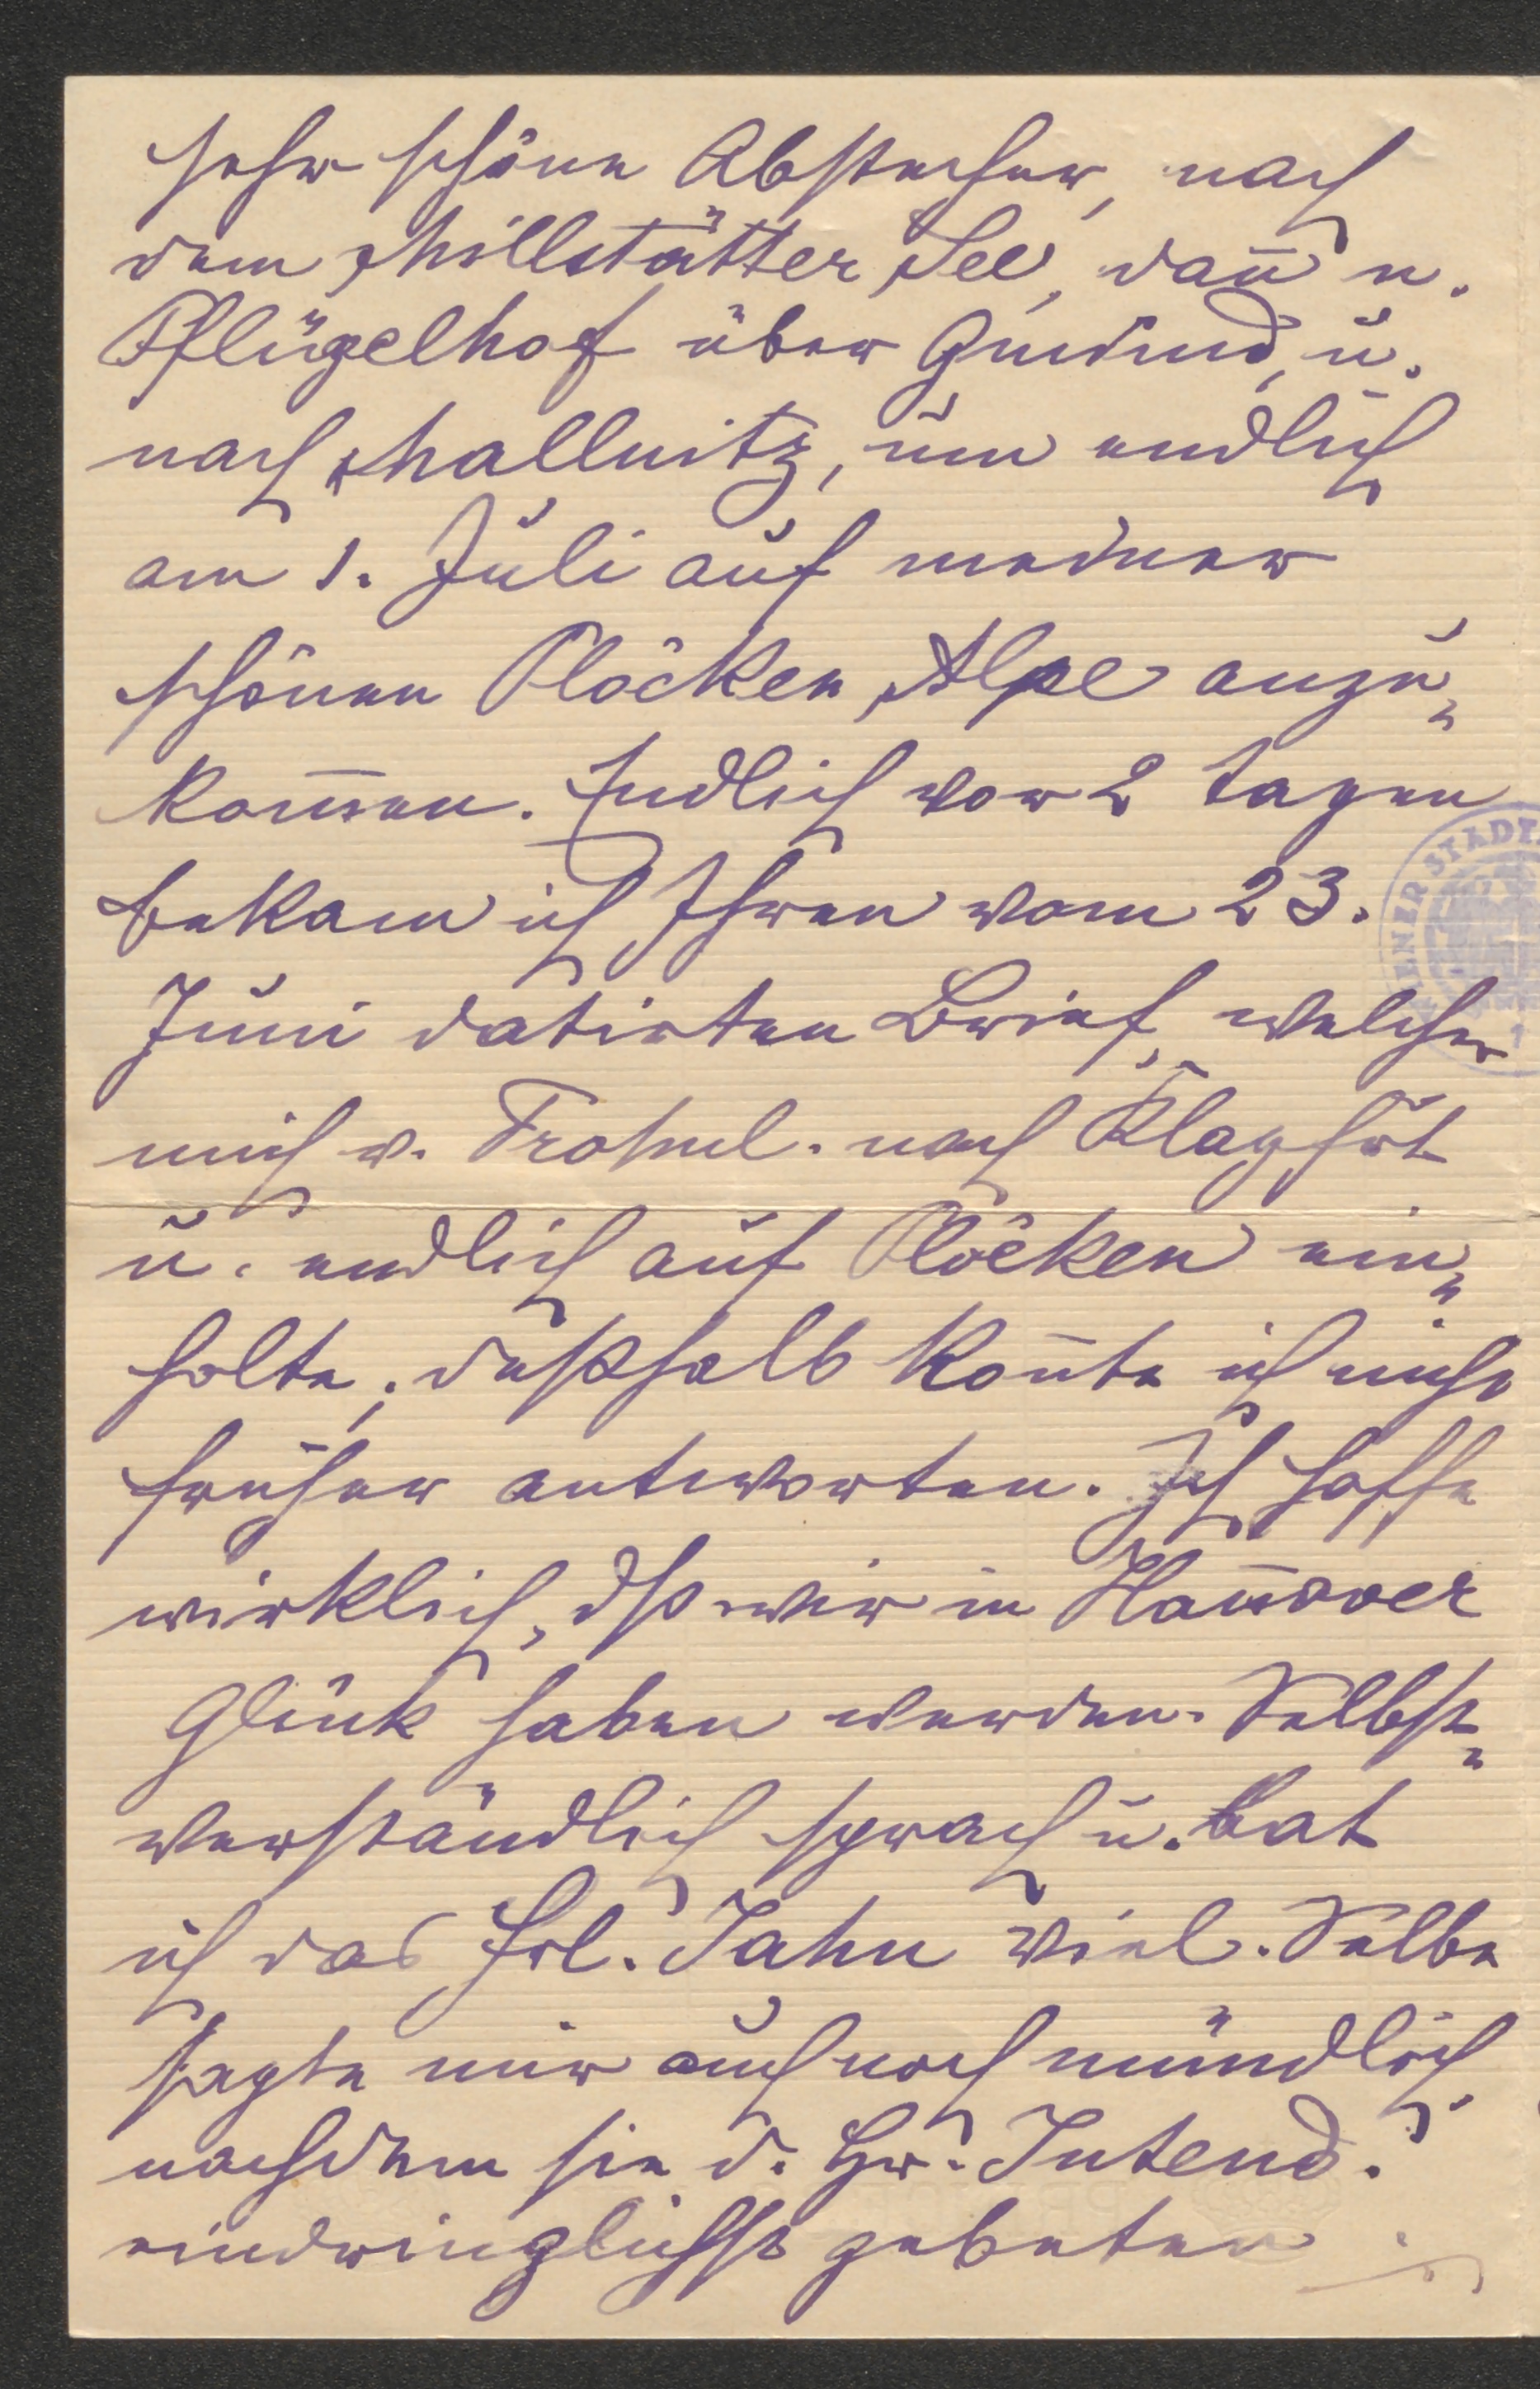 sehr schöne Abstecher, nach
dem Millstätter See, dan̄ n.
Pflügelhof über Gmünd, u.
nach Mallnitz, um endlich
am 1. Juli auf meiner
schönen Plöcken Alpe anzu„
kom̄en. Endlich vor 2 Tagen
bekam ich Ihren vom 23.
Juni datirten Brief, welcher
mich v. Frohnl. nach Klagfūt
u. endlich auf Plöcken ein„
holte; deßhalb kon̄te ich nicht
früher antworten. Ich hoffe
wirklich, dß wir in Han̄over
Glück haben werden. Selbst„
verständlich sprach u. bat
ich das Frl. Jahn viel. Selbe
sagte mir auch noch mündlich
nachdem sie d. Hr. Intend.
eindringlichst gebeten
WIENER STADT